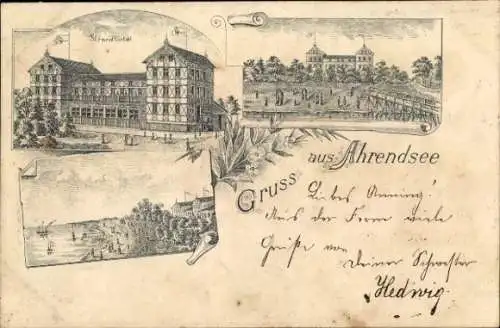 Strandhotel
Gruss
aus Ahrendsee
Liebes
Aus der Ferne viele
Grüße von
Deiner Schwester
Hedwig.